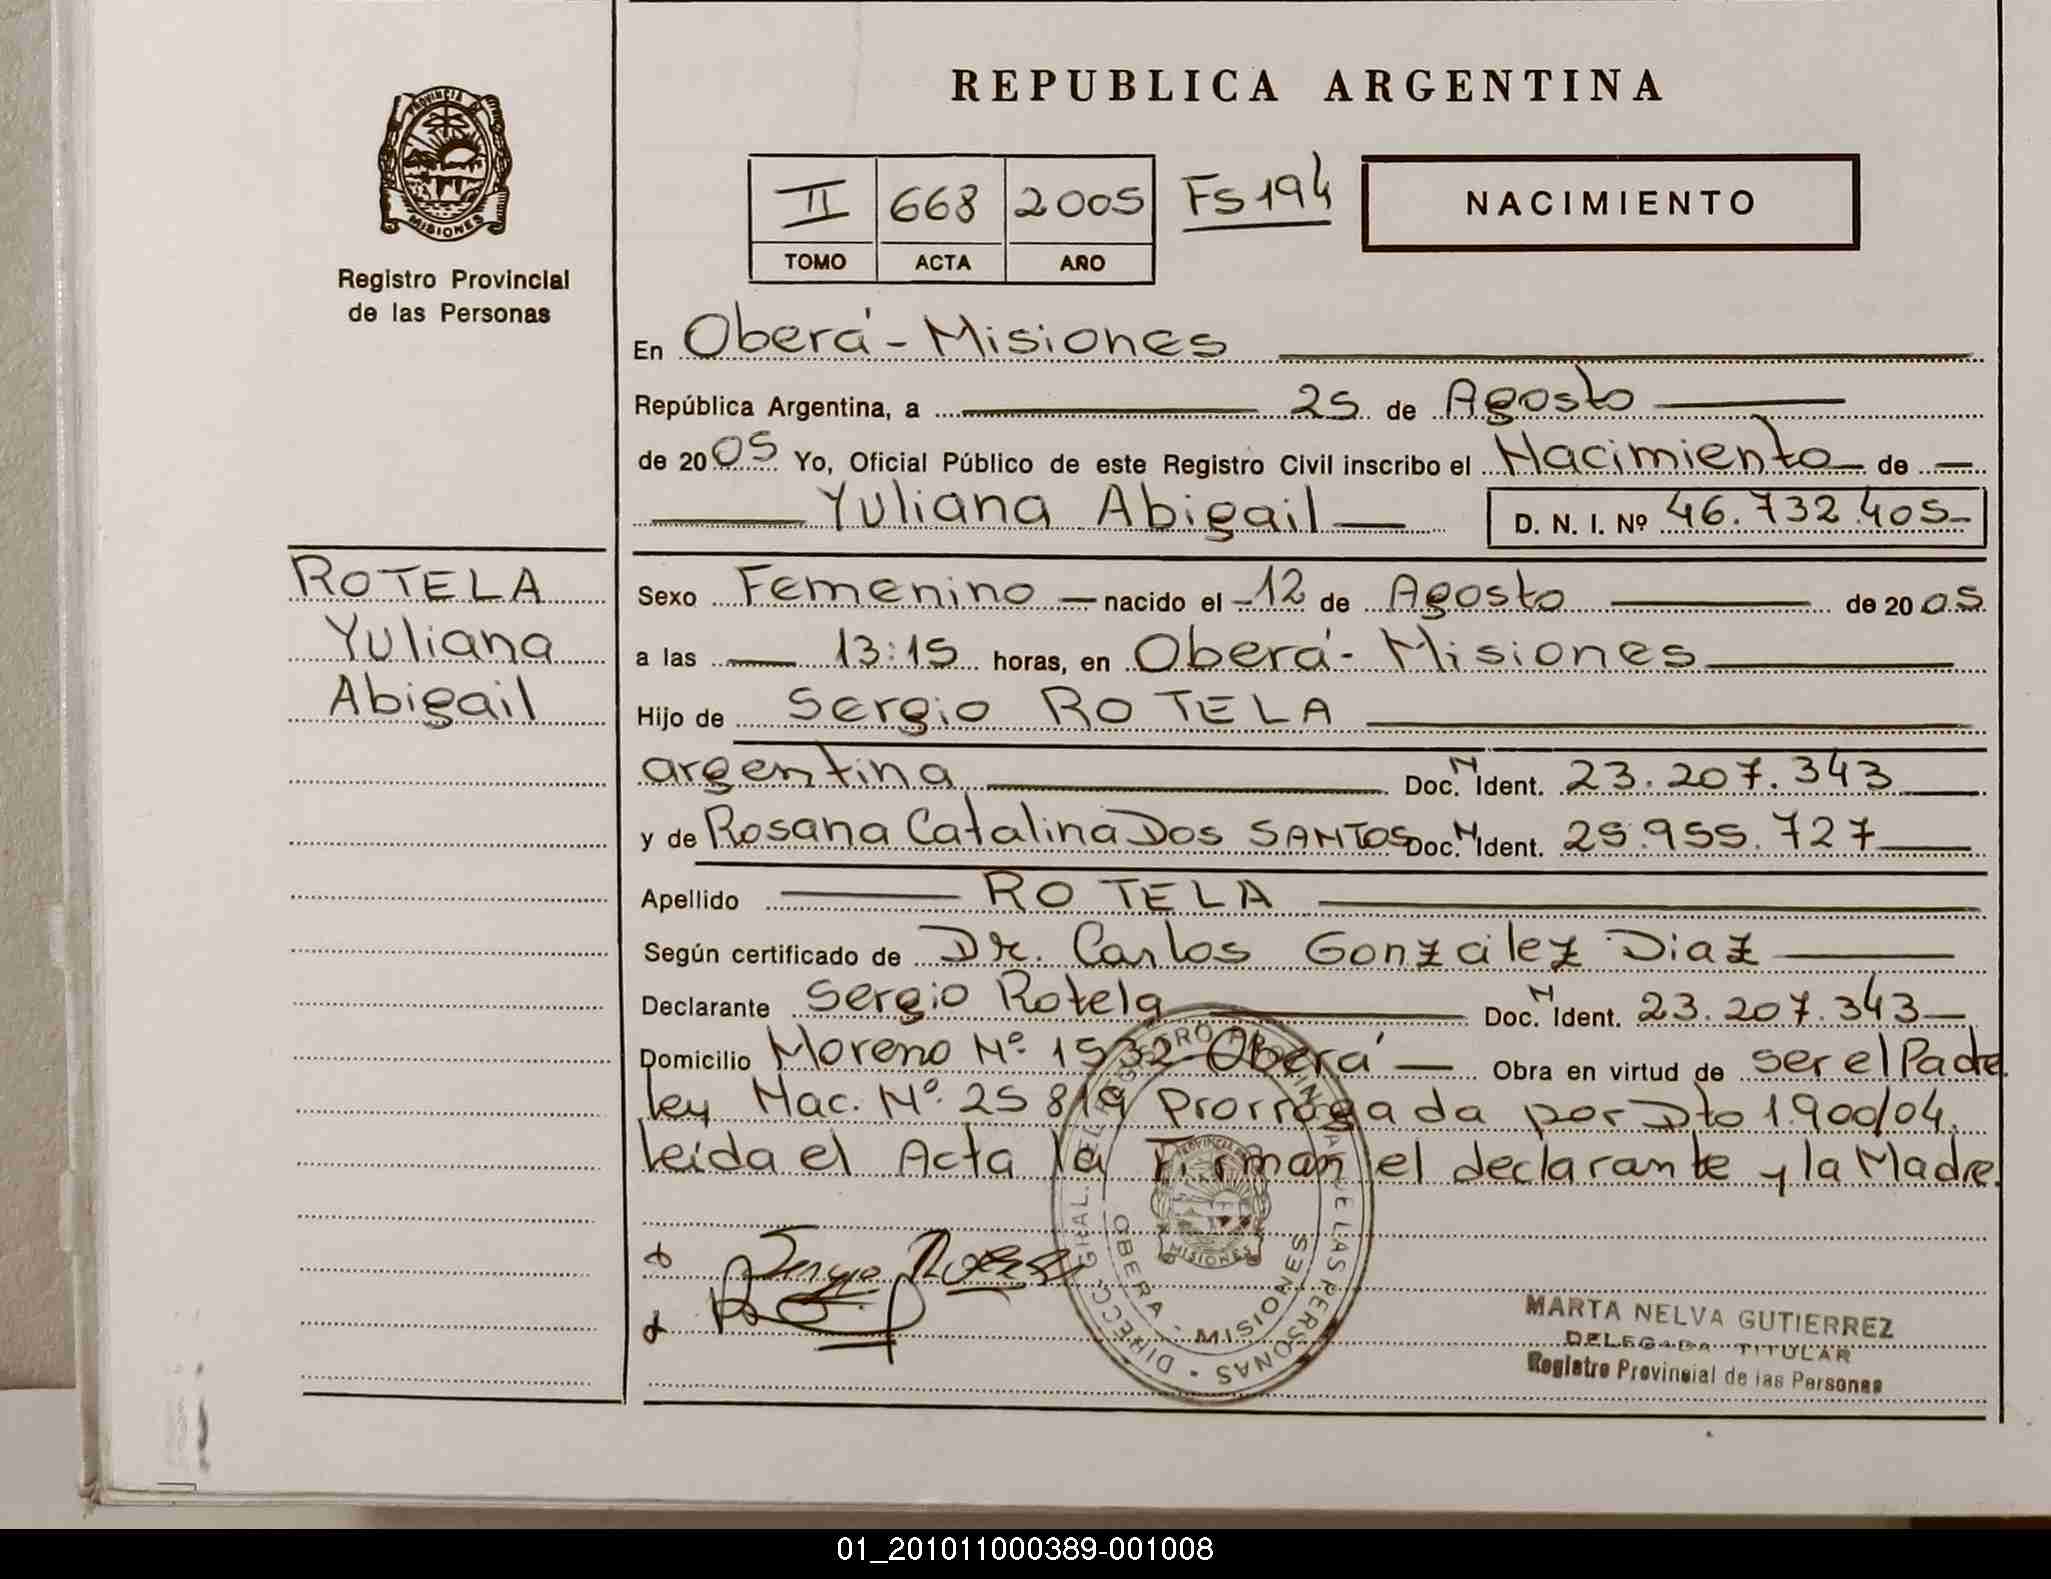 REPUBLICA ARGENTINA
PROVINCIA DE
MISIONES
Registro Provincial
de las Personas
II 668 2005 Fs 194
TOMO ACTA AÑO
NACIMIENTO
En Oberá - Misiones
República Argentina, a 25 de Agosto
de 2005 Yo, Oficial Público de este Registro Civil inscribo el Nacimiento de
Yuliana Abigail D. N. I. Nº 46.732.405
ROTELA
Yuliana
Abigail
Sexo Femenino nacido el 12 de Agosto de 2005
a las 13:15 horas, en Oberá - Misiones
Hijo de Sergio ROTELA
argentina Doc. N Ident. 23.207.343
y de Rosana Catalina Dos SANTOS Doc. N Ident. 25.955.727
Apellido ROTELA
Según certificado de Dr. Carlos González Diaz
Declarante Sergio Rotela Doc. N Ident. 23.207.343
Domicilio Moreno Nº 1532 - Oberá Obra en virtud de ser el Padre
ley Nac. Nº 25 819 Prorrogada por Dto 1.900/04.
leída el Acta la Firman el declarante y la Madre.
DIRECC. GRAL. DEL REGISTRO PROVINCIAL DE LAS PERSONAS
OBERA - MISIONES
PROVINCIA
MISIONES
MARTA NELVA GUTIERREZ
DELEGADA TITULAR
Registro Provincial de las Personas
01_201011000389-001008